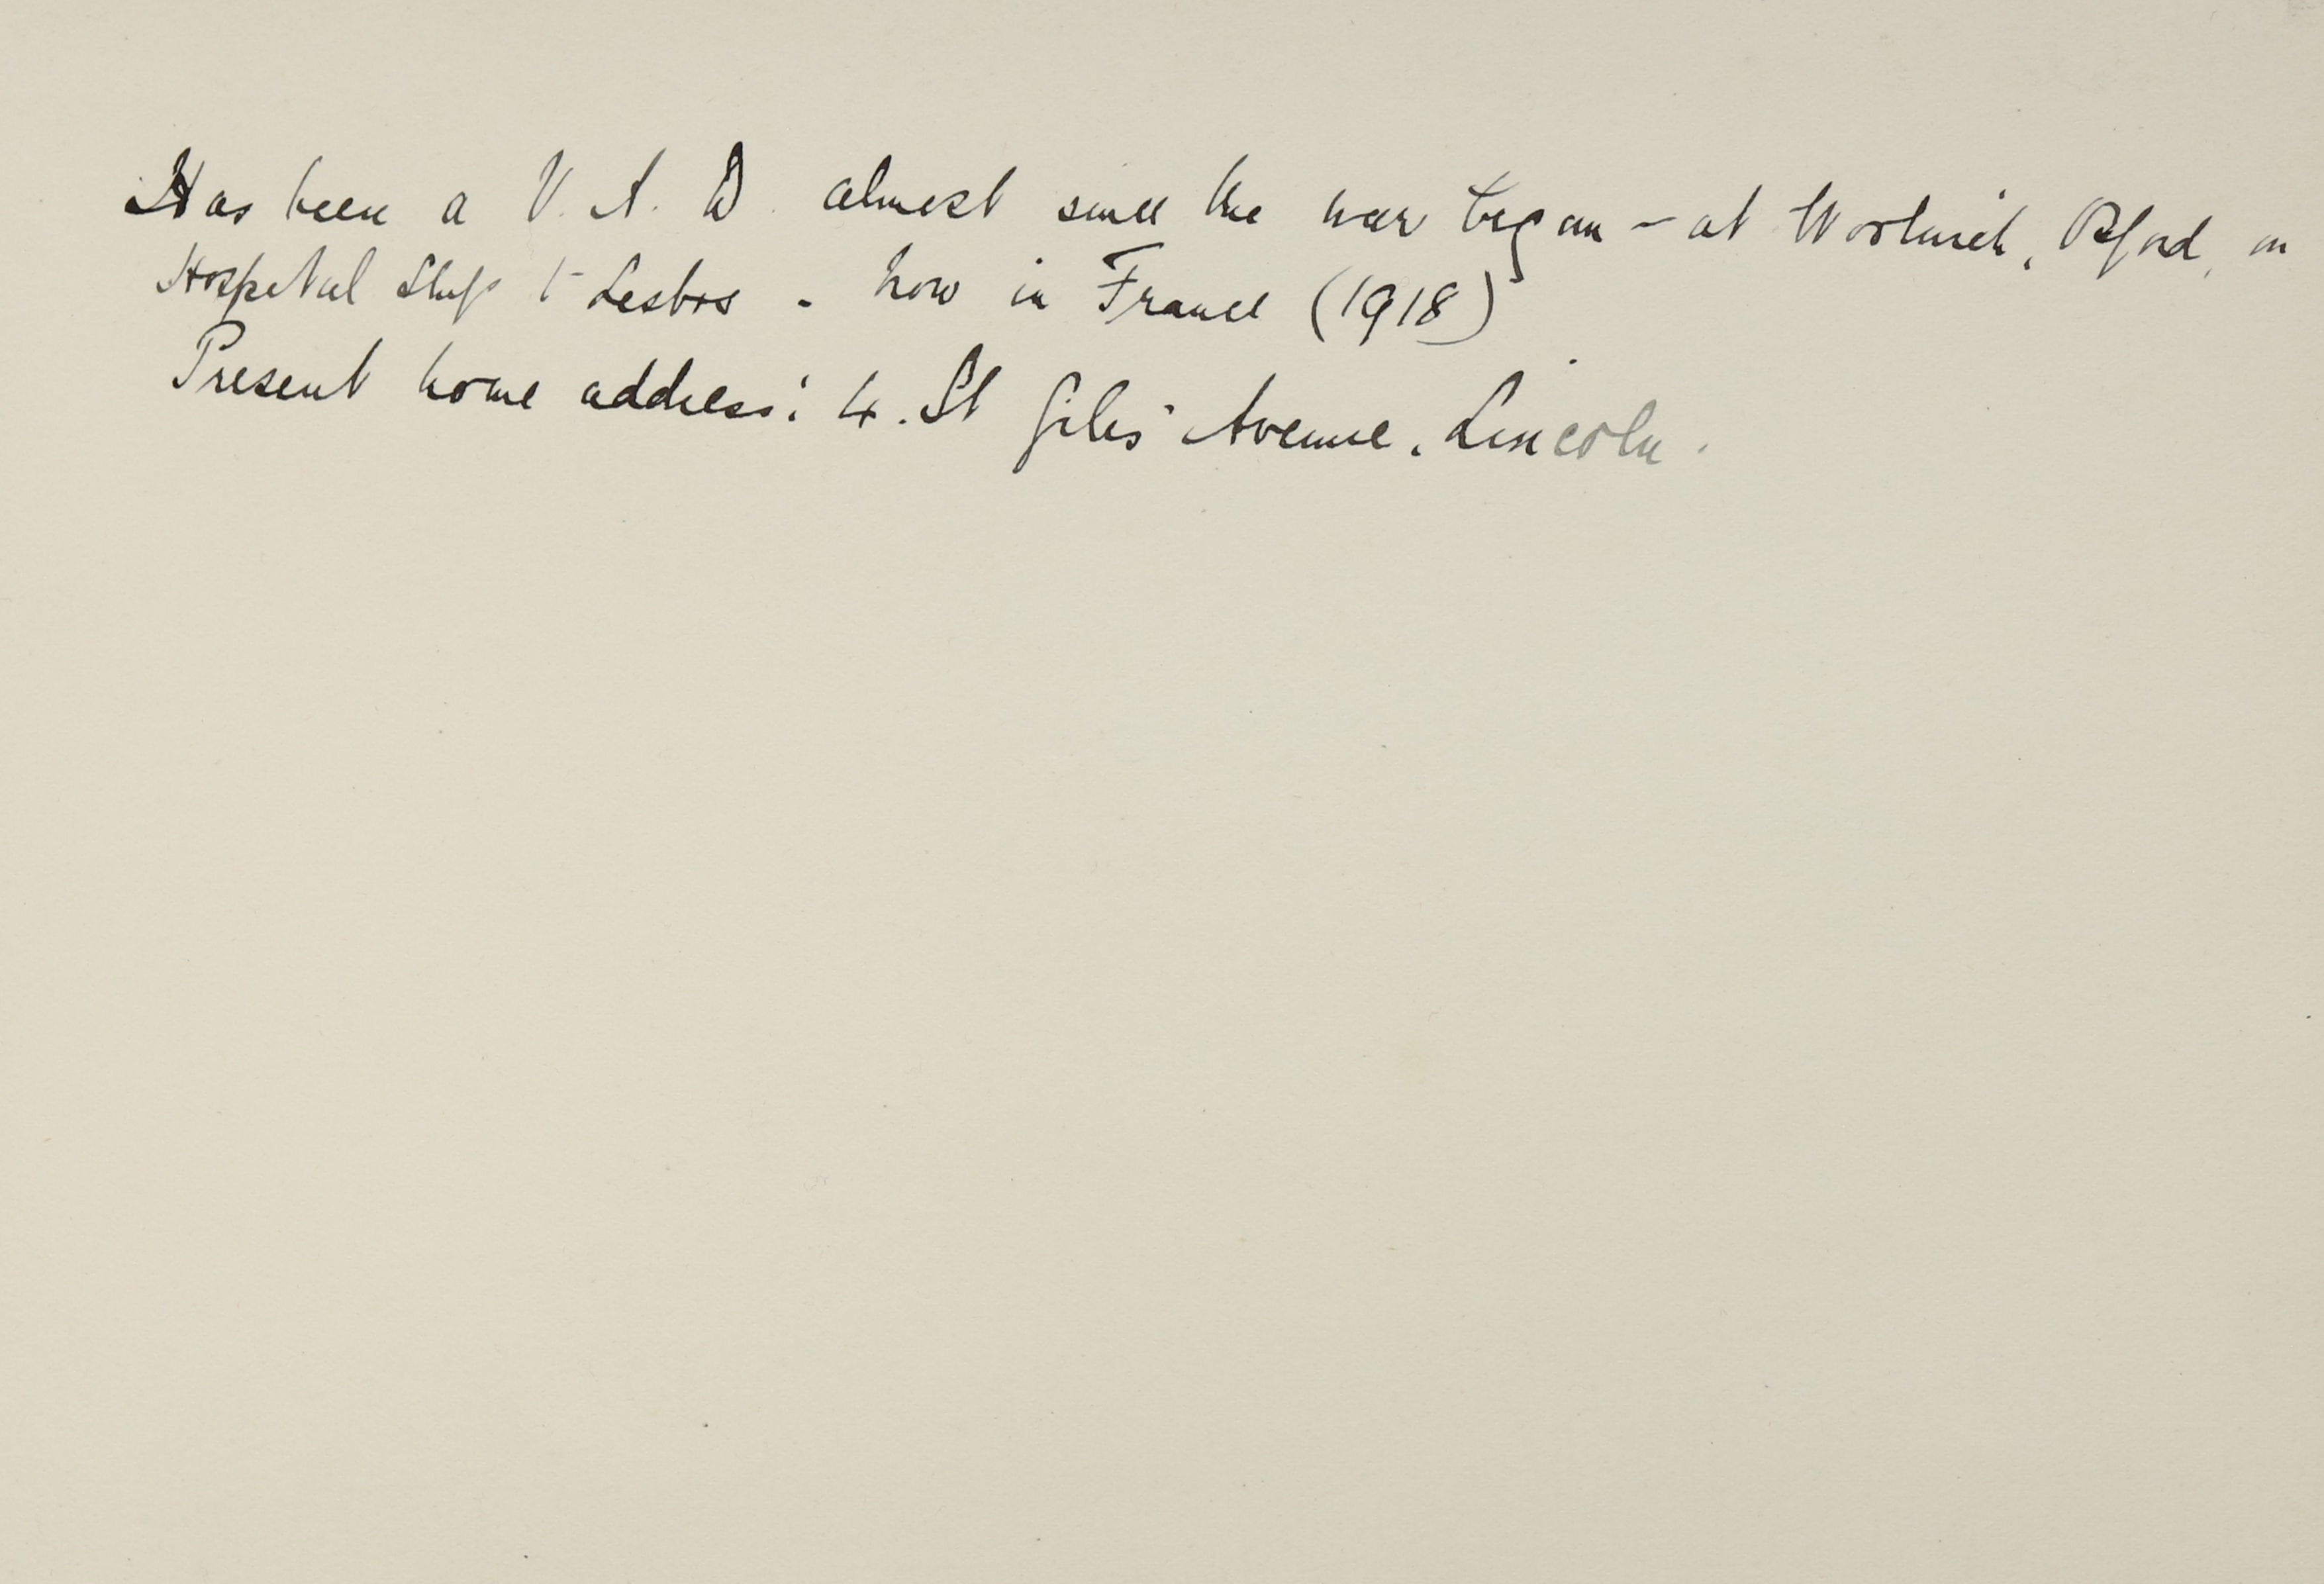 Has been a V. A. D. almost since the war began - at Woolwich, Oxford, on
Hospital Ship to Lesbos - now in France (1918)
Present home address: 4. St Giles' Avenue. Lincoln.